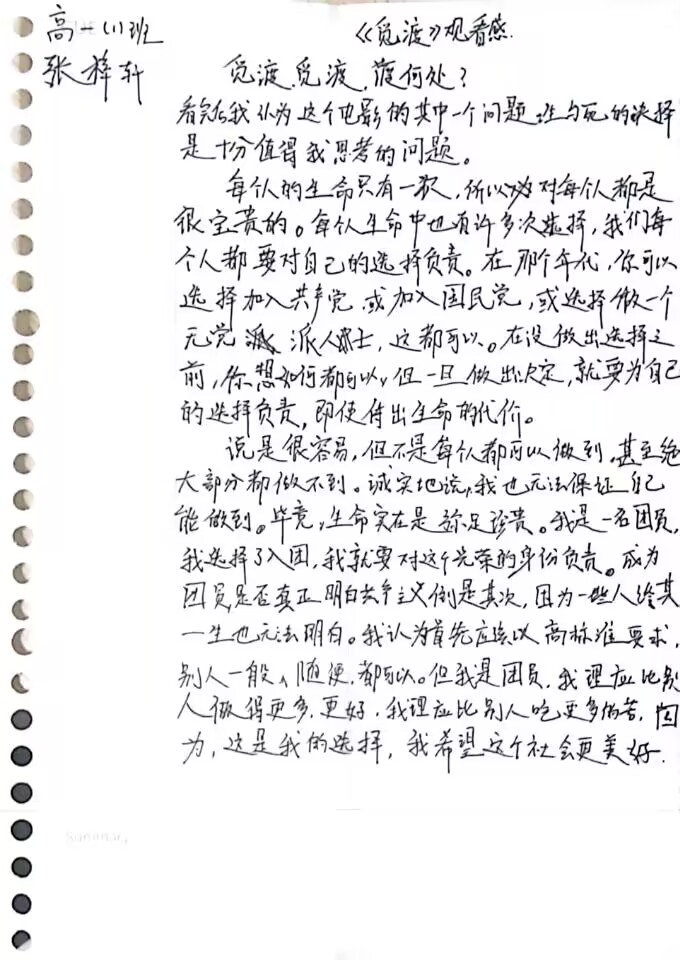 高一(1)班
《觅渡》观看感.
张梓轩
觅渡,觅渡,渡何处?
看完后我认为这个电影的其中一个问题:生与死的抉择
是十分值得我思考的问题。
每个人的生命只有一次,所以对每个人都是
很宝贵的。每个人生命中也有许多次选择,我们每
个人都要对自己的选择负责。在那个年代,你可以
选择加入共产党或加入国民党,或选择做一个
无党派人士,这都可以。在没做出选择之
前,你想如何都可以,但一旦做出决定,就要为自己
的选择负责,即使付出生命的代价。
说是很容易,但不是每个人都可以做到,甚至绝
大部分都做不到。诚实地说,我也无法保证自己
能做到。毕竟,生命实在是弥足珍贵。我是一名团员,
我选择了入团,我就要对这个光荣的身份负责。成为
团员是否真正明白共产主义倒是其次,因为一些人给其
一生也无法明白。我认为首先应该以高标准要求,
别人一般、随便,都可以。但我是团员,我理应比别
人做得更多,更好,我理应比别人吃更多的苦,因
为,这是我的选择,我希望这个社会更美好.
Summary